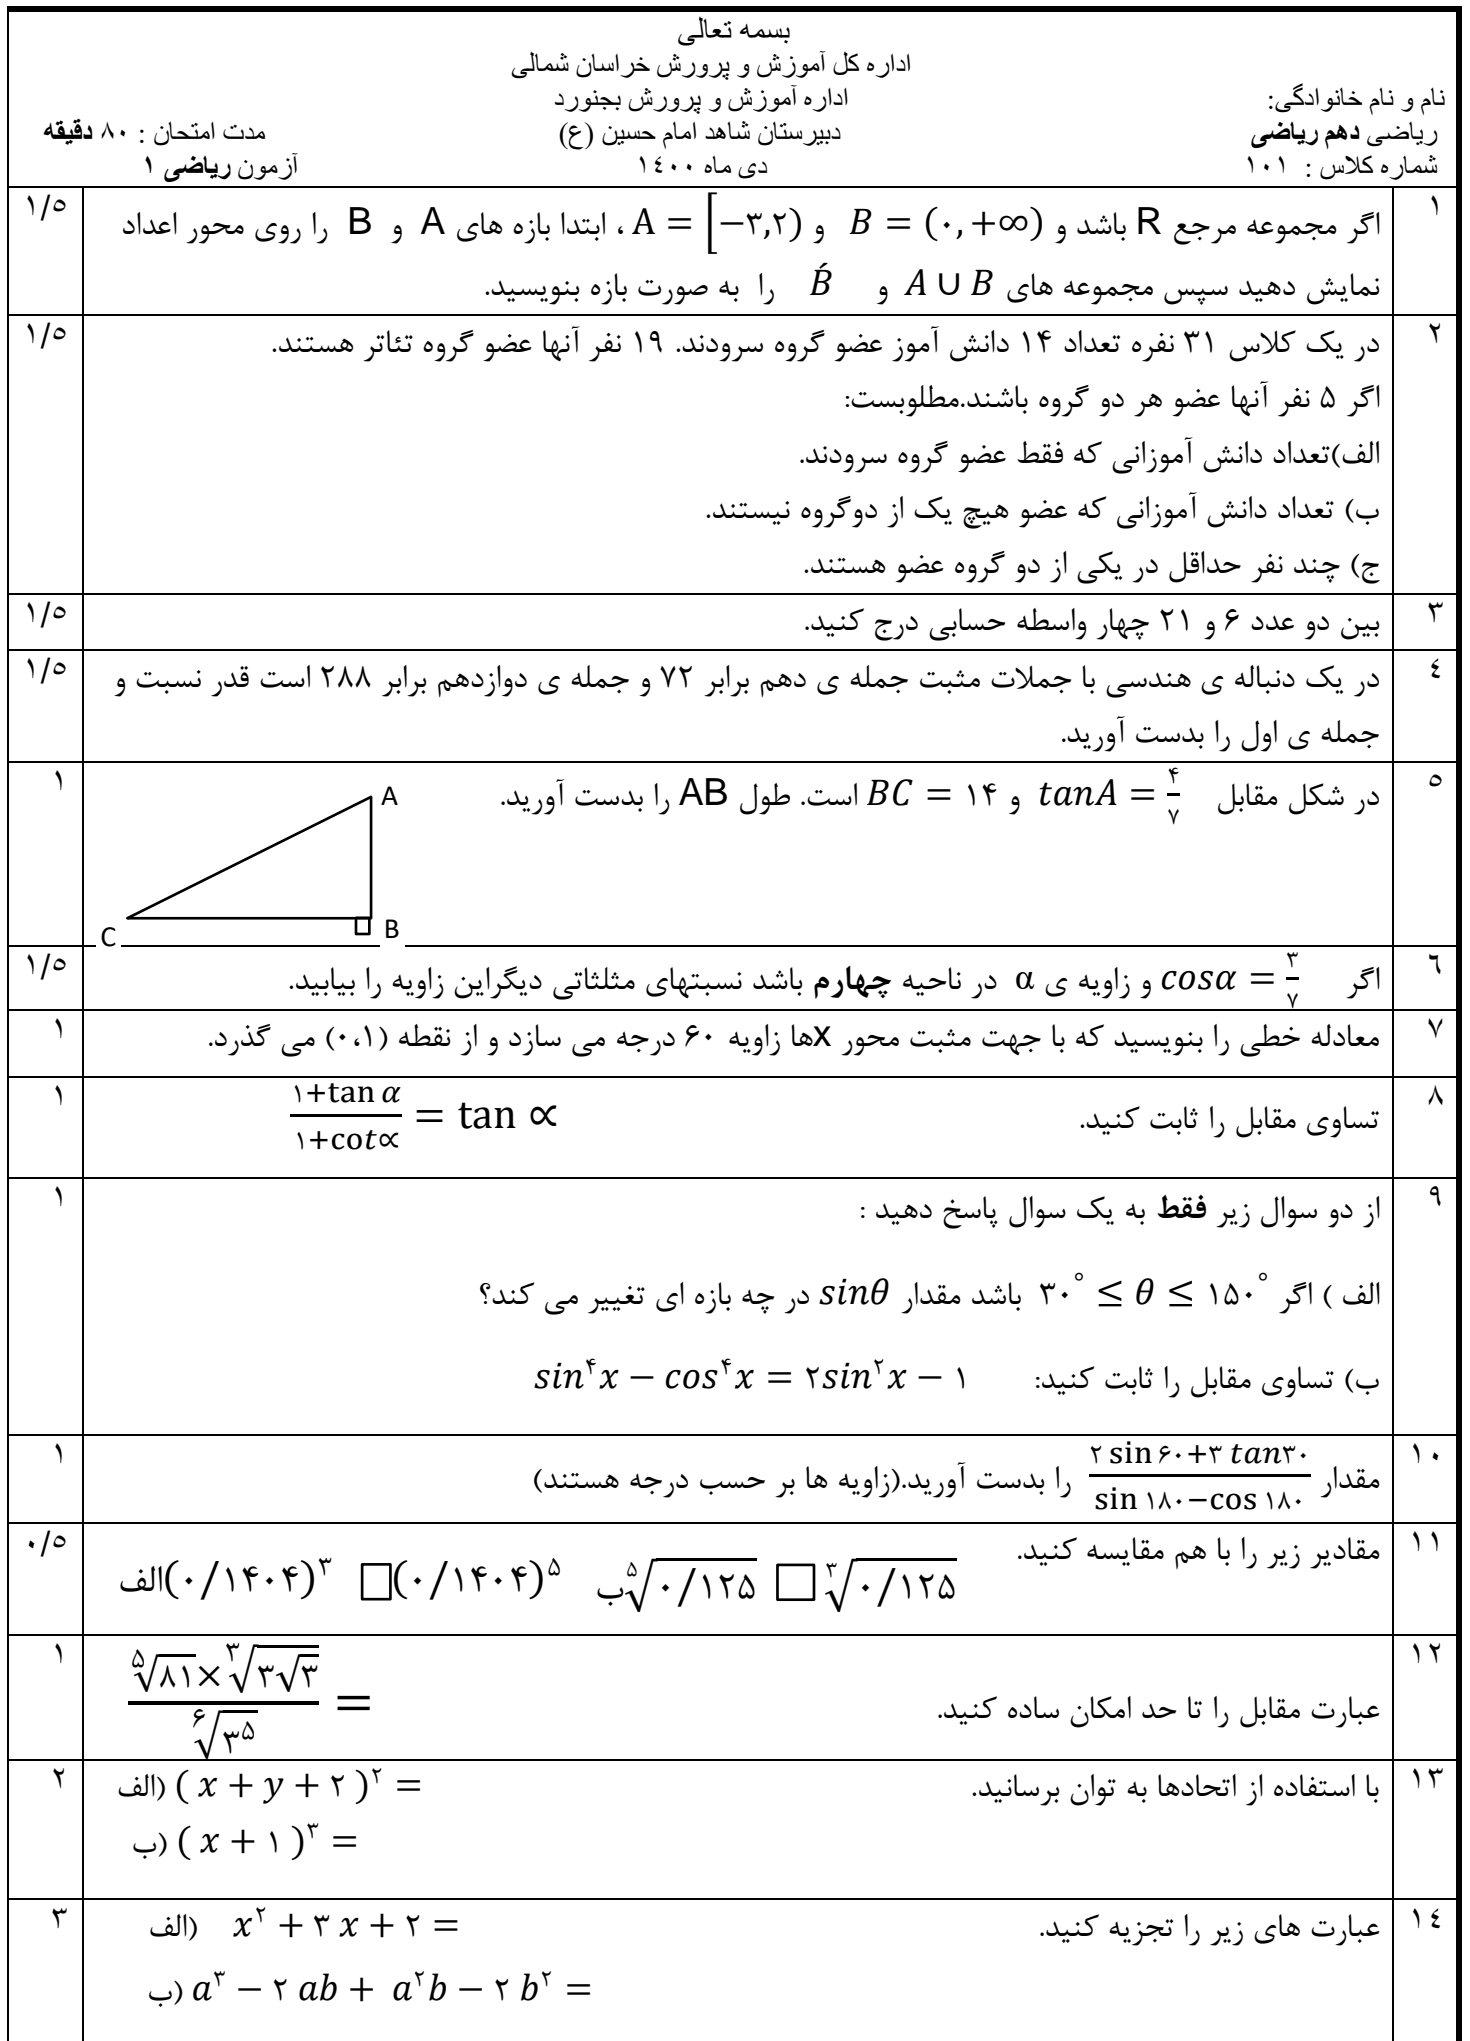 بسمه تعالی
اداره کل آموزش و پرورش خراسان شمالی
نام و نام خانوادگی: اداره آموزش و پرورش بجنورد
ریاضی دهم ریاضی دبیرستان شاهد امام حسین (ع) مدت امتحان : ۸۰ دقیقه
شماره کلاس : ۱۰۱ دی ماه ۱٤۰۰ آزمون ریاضی ۱
۱ اگر مجموعه مرجع R باشد و B = (۰, +∞) و A = [−۳,۲) ، ابتدا بازه های A و B را روی محور اعداد ۱/٥
نمایش دهید سپس مجموعه های A ∪ B و B́ را به صورت بازه بنویسید.
۲ در یک کلاس ۳۱ نفره تعداد ۱۴ دانش آموز عضو گروه سرودند. ۱۹ نفر آنها عضو گروه تئاتر هستند. ۱/٥
اگر ۵ نفر آنها عضو هر دو گروه باشند.مطلوبست:
الف)تعداد دانش آموزانی که فقط عضو گروه سرودند.
ب) تعداد دانش آموزانی که عضو هیچ یک از دوگروه نیستند.
ج) چند نفر حداقل در یکی از دو گروه عضو هستند.
۳ بین دو عدد ۶ و ۲۱ چهار واسطه حسابی درج کنید. ۱/٥
٤ در یک دنباله ی هندسی با جملات مثبت جمله ی دهم برابر ۷۲ و جمله ی دوازدهم برابر ۲۸۸ است قدر نسبت و ۱/٥
جمله ی اول را بدست آورید.
٥ در شکل مقابل tanA = ۴/۷ و BC = ۱۴ است. طول AB را بدست آورید. ۱
A
C B
٦ اگر cosα = ۳/۷ و زاویه ی α در ناحیه چهارم باشد نسبتهای مثلثاتی دیگراین زاویه را بیابید. ۱/٥
۷ معادله خطی را بنویسید که با جهت مثبت محور xها زاویه ۶۰ درجه می سازد و از نقطه (۰،۱) می گذرد. ۱
۸ تساوی مقابل را ثابت کنید. (۱+tan α)/(۱+cot∝) = tan ∝ ۱
۹ از دو سوال زیر فقط به یک سوال پاسخ دهید : ۱
الف ) اگر ۳۰° ≤ θ ≤ ۱۵۰° باشد مقدار sinθ در چه بازه ای تغییر می کند؟
ب) تساوی مقابل را ثابت کنید: sin⁴x − cos⁴x = ۲sin²x − ۱
۱۰ مقدار (۲ sin ۶۰+۳ tan۳۰)/(sin ۱۸۰−cos ۱۸۰) را بدست آورید.(زاویه ها بر حسب درجه هستند) ۱
۱۱ مقادیر زیر را با هم مقایسه کنید. الف(۰/۱۴۰۴)³ □(۰/۱۴۰۴)⁵ ب ⁵√۰/۱۲۵ □ ³√۰/۱۲۵ ۰/٥
۱۲ عبارت مقابل را تا حد امکان ساده کنید. (⁵√۸۱×³√(۳√۳))/(⁶√۳⁵) = ۱
۱۳ با استفاده از اتحادها به توان برسانید. الف) ( x + y + ۲ )² = ۲
ب) ( x + ۱ )³ =
۱٤ عبارت های زیر را تجزیه کنید. الف) x² + ۳ x + ۲ = ۳
ب) a³ − ۲ ab + a²b − ۲ b² =